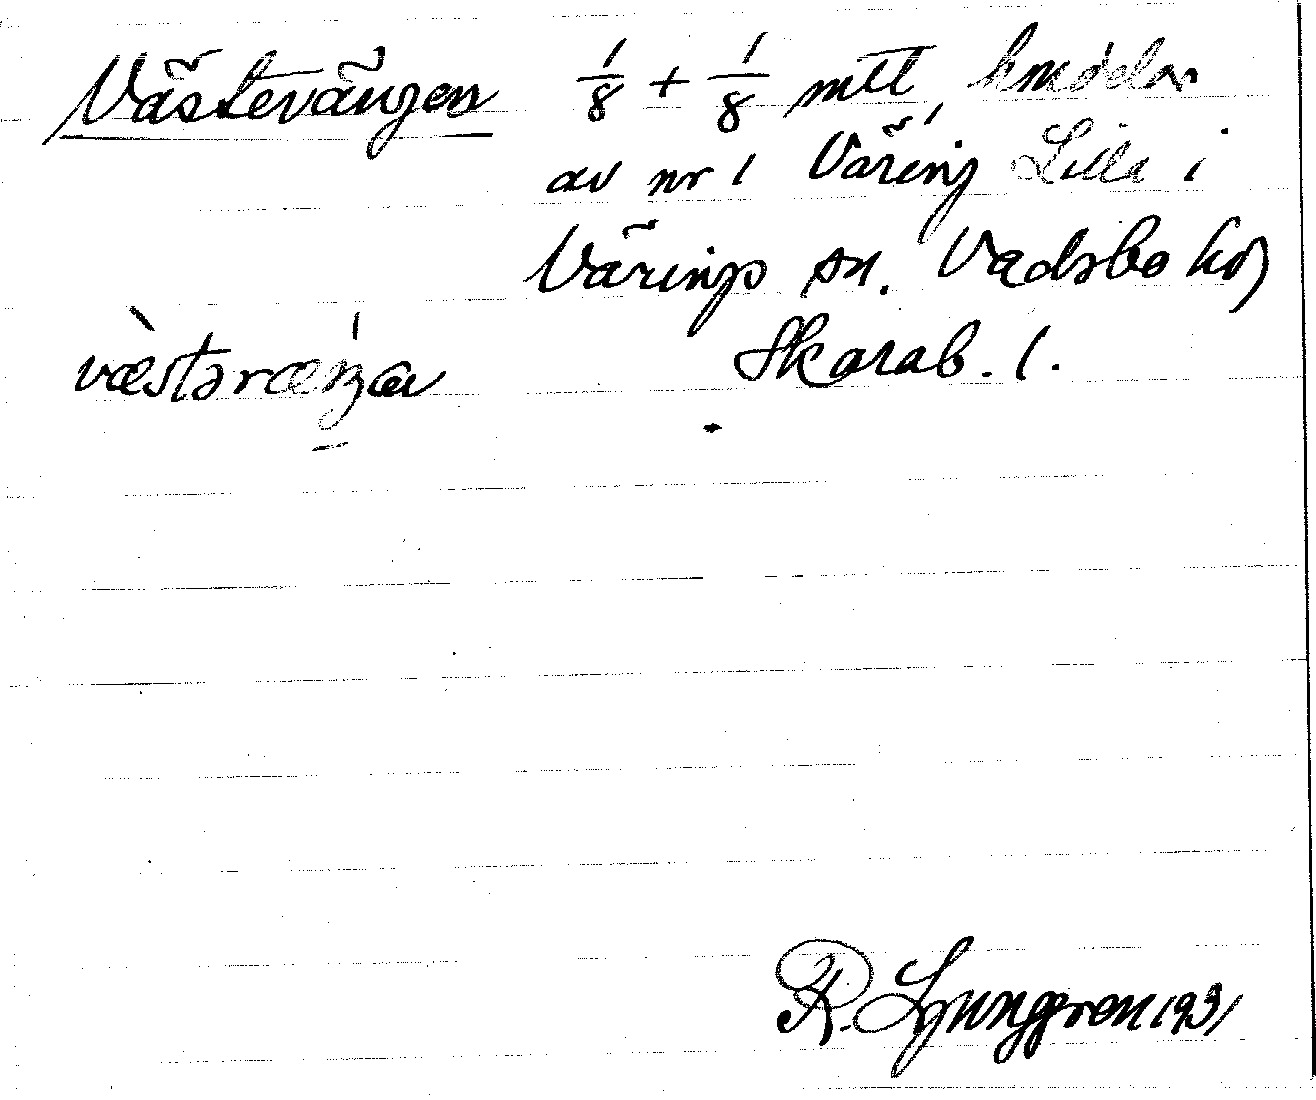 Västevängen 1/8 + 1/8 mtl, hmdelar
av nr 1 Väring Lilla i
Värings sn. Vadsbo hd
Skarab. l.
R. Ljunggren 1931